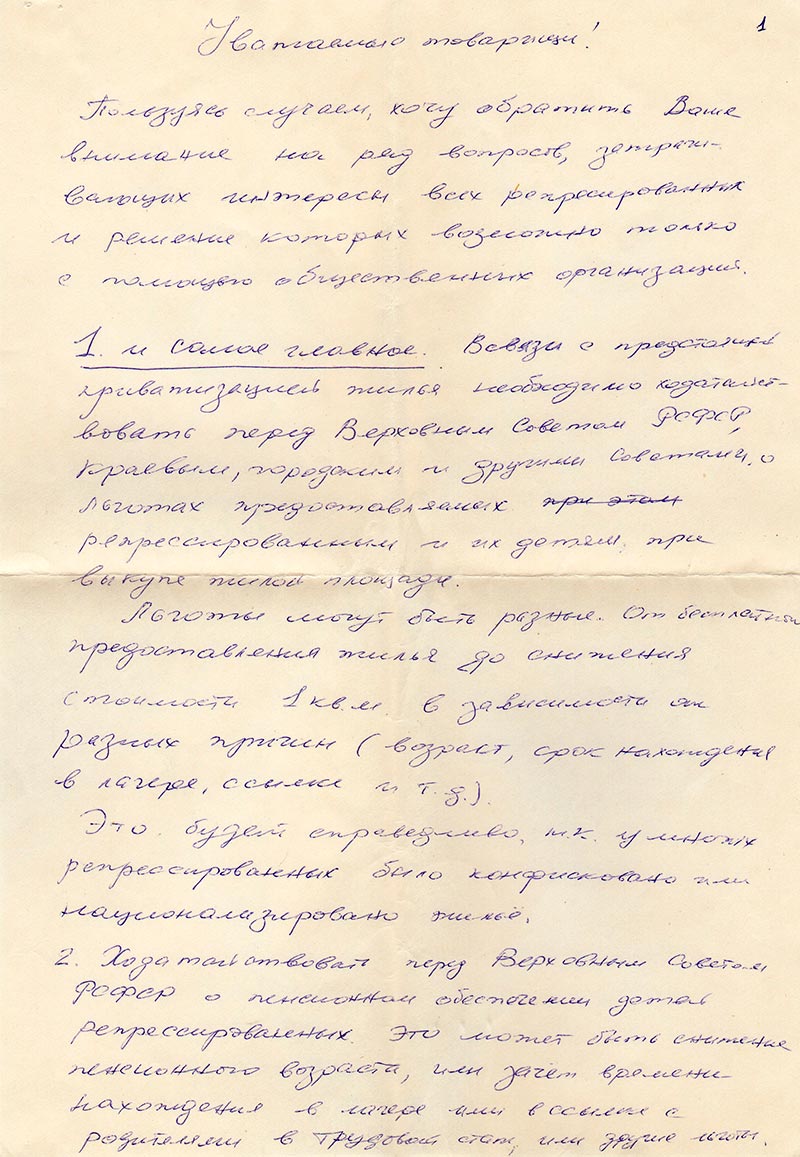 1
Уважаемые товарищи!
Пользуясь случаем, хочу обратить Ваше
внимание на ряд вопросов, затраги-
вающих интересы всех репресированных
и решение которых возможно только
с помощью общественных организаций.
1. и самое главное. Всвязи с предстоящей
приватизацией жилья необходимо ходатайст-
вовать перед Верховным Советом РСФСР,
краевым, городским и другими Советами, о
льготах предоставляемых при этом
репрессированным и их детям, при
выкупе жилой площади.
Льготы могут быть разные. От бесплатного
предоставления жилья до снижения
стоимости 1 кв.м. в зависимости от
разных причин (возраст, срок нахождения
в лагере, ссылке и т.д.).
Это будет справедливо, т.к. у многих
репрессированных было конфисковано или
национализировано жильё.
2. Ходатайствовать перед Верховным Советом
РСФСР о пенсионном обеспечении детей
репрессированных. Это может быть снижение
пенсионного возраста, или зачет времени
нахождения в лагере или в ссылке с
родителями в трудовой стаж, или другие льготы.